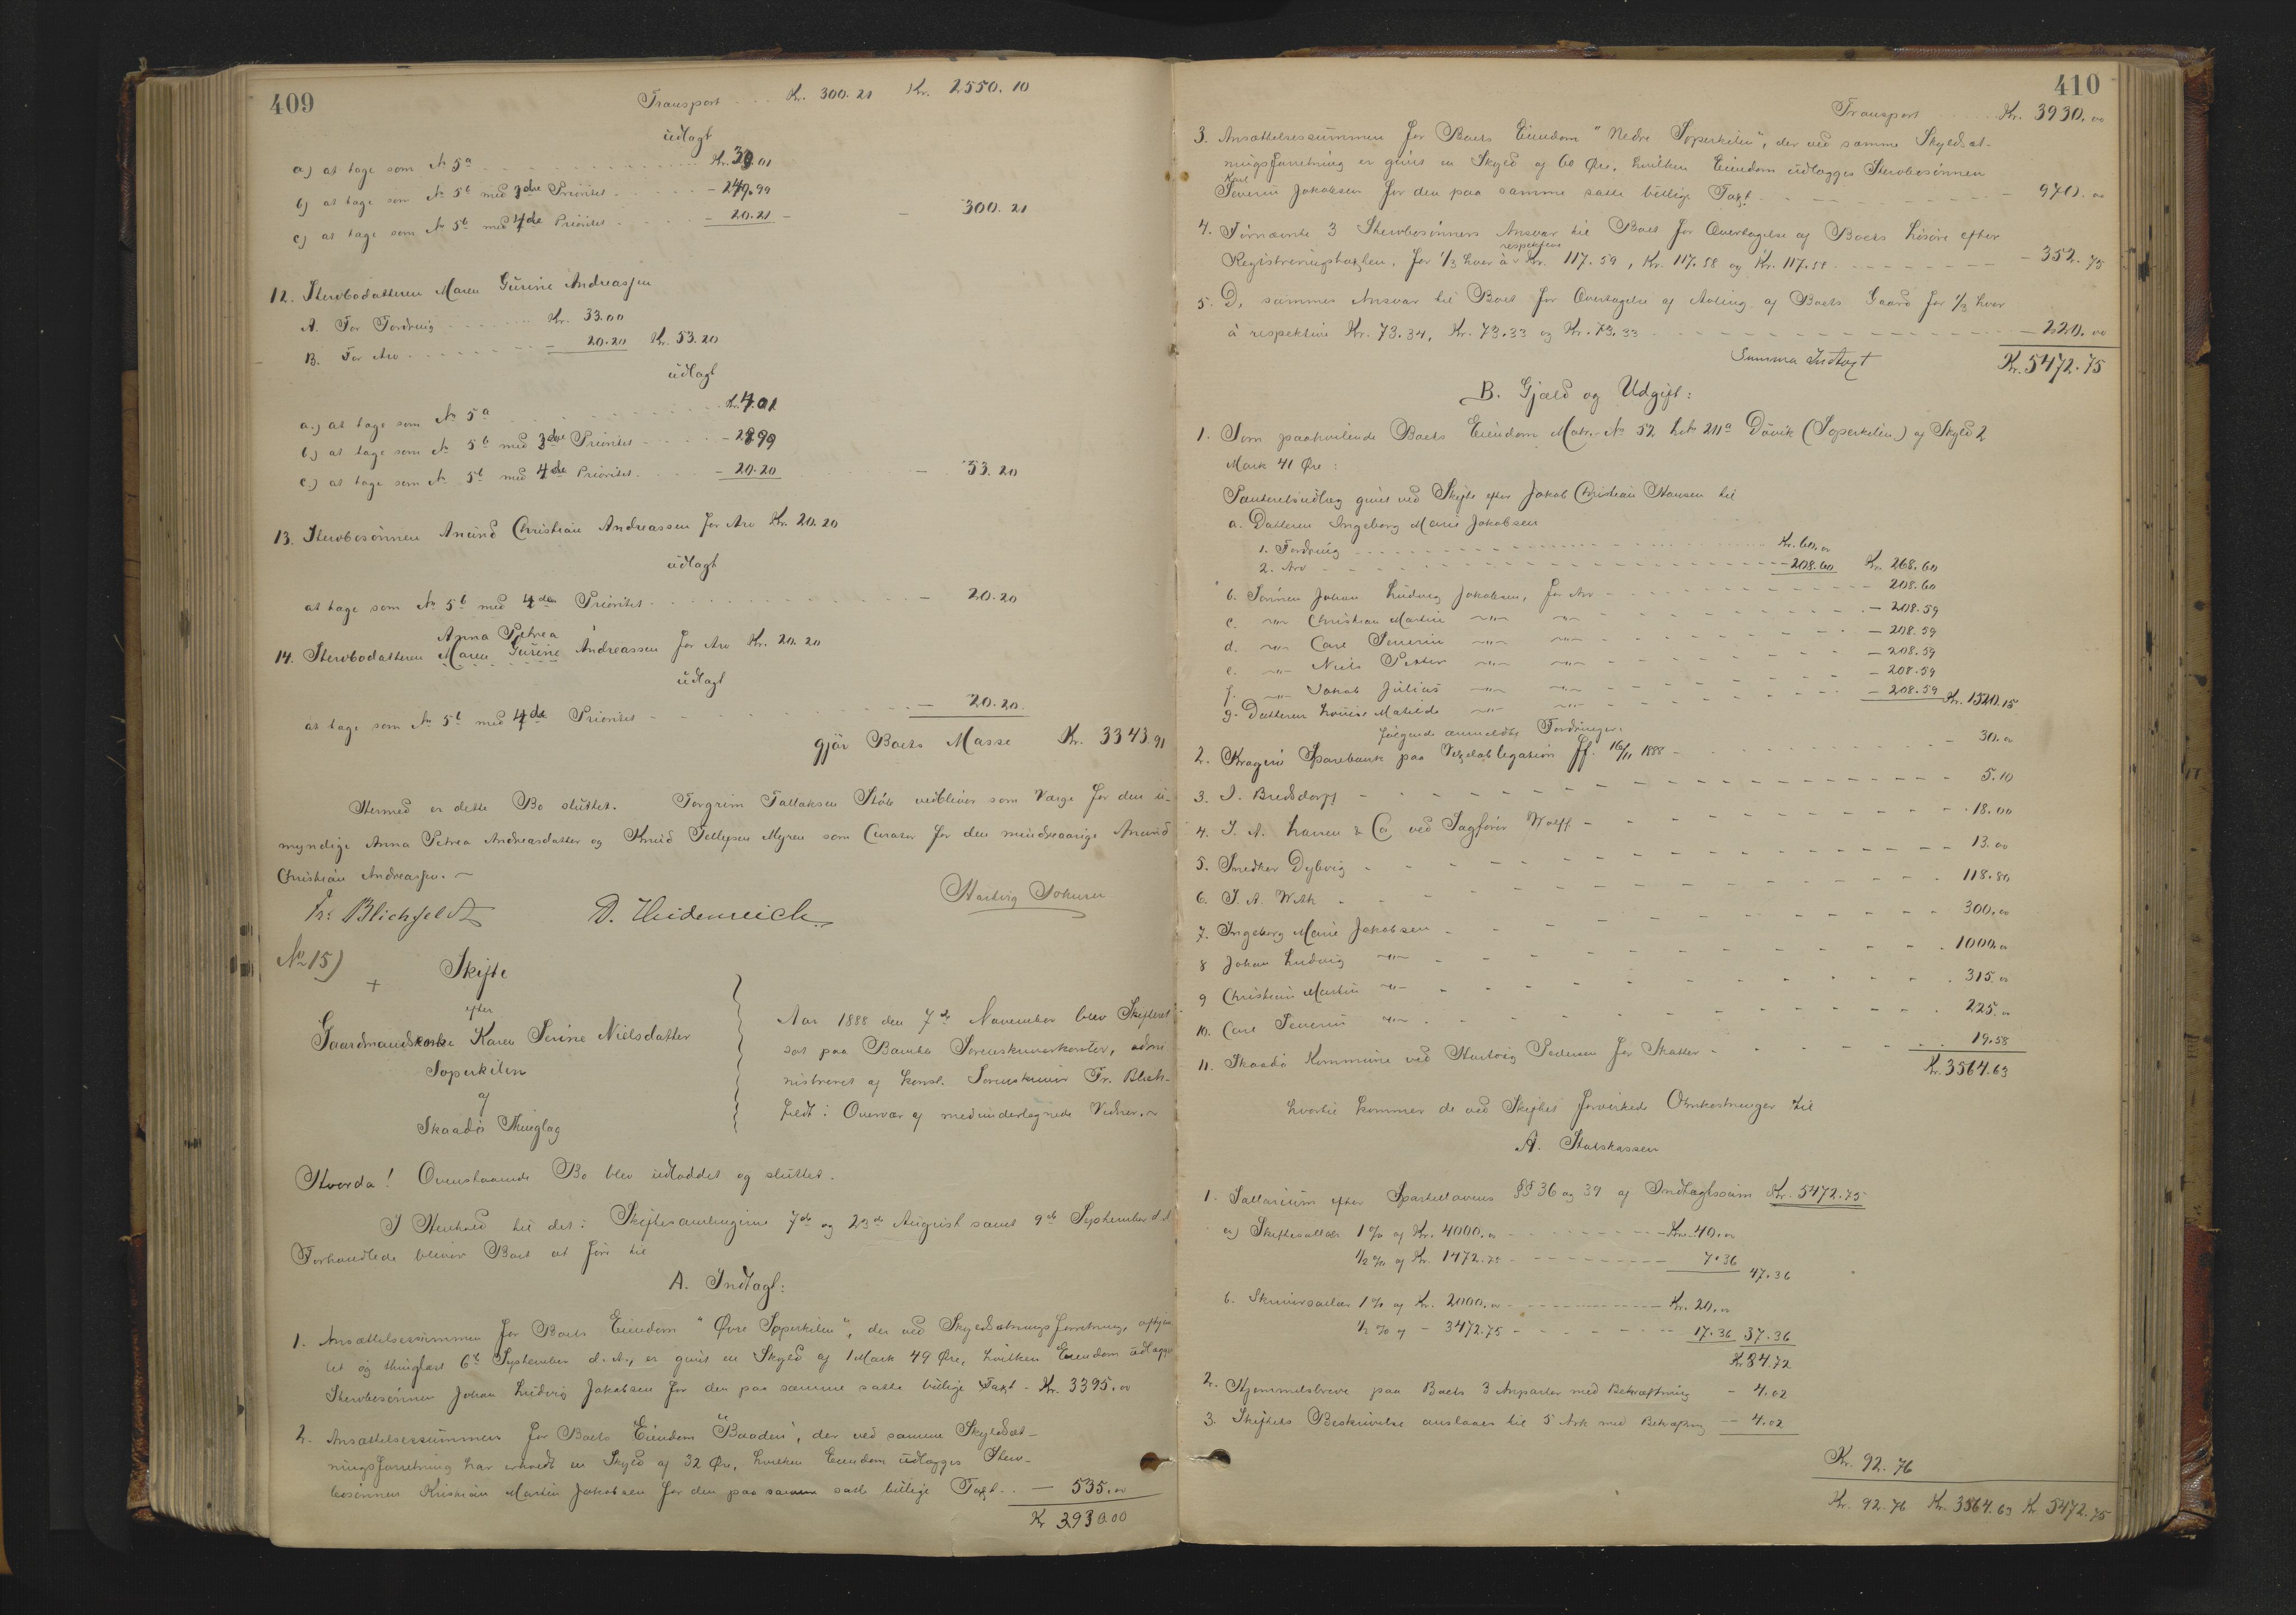 409
Transport ... Kr. 300.21 Kr. 2550.10
udlagt
a) at tage som № 5a ... Kr. 30.01
b) at tage som № 5b med 3die Prioritet ... - 249.99
c) at tage som № 5b med 4de Prioritet ... - 20.21 - - 300.21
12. Stervbodatteren Maren Gurine Andreassen
A. For Fordring ... Kr. 33.00
B. For Arv ... - 20.20 Kr. 53.20
udlagt
a.) at tage som № 5a ... Kr. 4.01
b.) at tage som № 5b med 3die Prioritet ... - 28.99
c.) at tage som № 5b med 4de Prioritet ... - 20.20 - 53.20
13. Stervbosønnen Anund Christian Andreassen for Arv Kr. 20.20
udlagt
at tage som № 5b med 4de Prioritet ... - 20.20
Anna Petrea
14. Stervbodatteren Maren Gurine Andreassen for Arv Kr. 20.20
udlagt
at tage som № 5b med 4de Prioritet ... - 20.20
gjør Boets Masse Kr. 3343.91
Hermed er dette Bo sluttet. Torgrim Tallaksen Støle vedbliver som Værge for den u-
myndige Anna Petrea Andreasdatter og Knud Tellefsen Myren som Curator for den mindreaarige Anund
Christian Andreassen.
Fr. Blichfeldt D. Heidenreich Hartvig
№ 15)
+ Skifte
efter
Gaardmandskone Karen Serine Nielsdatter
Soperkilen
af
Skaadø Thinglag
Aar 1888 den 7de November blev Skifteret
sat paa Bamble Sorenskriverkontor, admi-
nistreret af konst. Sorenskriver Fr. Blich-
feldt i Overvær af medundertegnede Vidner.
Hvorda! Ovenstaaende Bo blev udloddet og sluttet.
I Henhold til det i Skiftesamlingerne 7de og 23de August samt 9de September d. A
Forhandlede bliver Boet at føre til
A. Indtægt:
1. Ansættelsessummen for Boets Eiendom "Øvre Soperkilen", der ved Skyldsætningsforretning, afhjem
let og thinglæst 6te September d. A., er givet en Skyld af 1 Mark 49 Øre, hvilken Eiendom udlægges
Stervbosønnen Johan Ludvig Jakobsen for den paa samme satte billige Taxt - Kr. 3395.00
2. Ansættelsessummen for Boets Eiendom "Baaden", der ved samme Skyldsæt-
ningsforretning har erholdt en Skyld af 32 Øre, hvilken Eiendom udlægges Sterv-
bosønnen Kristian Martin Jakobsen for den paa samme satte billige Taxt .. - 535.00
Kr 3930.00
410
Transport ... Kr. 3930.00
3. Ansættelsessummen for Boets Eiendom "Nedre Soperkilen", der ved samme Skyldsæt-
ningsforretning er givet en Skyld af 60 Øre, hvilken Eiendom udlægges Stervbosønnen
Karl
Severin Jakobsen for den paa samme satte billige Taxt ... - 970.00
4. Førnævnte 3 Stervbosønners Ansvar til Boet for Overtagelse af Boets Løsøre efter
respektive
Registreringstaxten, for 1/3 hver à Kr. 117.59, Kr. 117.58 og Kr. 117.58 ... - 352.75
5. D, sammes Ansvar til Boet for Overtagelse af Avling af Boets Gaard for 1/3 hver
à respektive Kr. 73.34, Kr. 73.33 og Kr. 73.33 ... - 220.00
Summa Indtægt Kr. 5472.75
B. Gjæld og Udgift:
1. Som paahvilende Boets Eiendom Matr.-№ 52 L.№ 211a Døvik (Soperkilen) af Skyld 2
Mark 41 Øre:
Panteretsudlæg givet ved Skifte efter Jakob Christian Hansen til
a. Datteren Ingeborg Marie Jakobsen
1. Fordring ... Kr. 60.00
2. Arv ... - 208.60 Kr. 268.60
b. Sønnen Johan Ludvig Jakobsen, for Arv ... - 208.60
c. -"- Christian Martin -"- -"- ... - 208.59
d. -"- Carl Severin -"- -"- ... - 208.59
e. -"- Niels Petter -"- -"- ... - 208.59
f. -"- Jakob Julius -"- -"- ... - 208.59
g. Datteren Louise Matilde -"- -"- ... - 208.59 Kr. 1520.15
følgende anmeldte Fordringer:
2. Kragerø Sparebank paa Vexelobligation Ff. 16/11 1888 ... - 30.00
3. I. Bredsdorff ... 5.10
4. J. A. Larsen & Co ved Sagfører Wolff ... 18.00
5. Snedker Dybvig ... 13.00
6. J. A. Wirth ... 118.80
7. Ingeborg Marie Jakobsen ... 300.00
8 Johan Ludvig -"- ... 1000.00
9 Christian Martin -"- ... 315.00
10. Carl Severin -"- ... 225.00
11. Skaadø Kommune ved Hartvig Pedersen for Skatter ... 19.58
Kr. 3564.63
hvortil kommer de ved Skiftet forvirkede Omkostninger til
A. Statskassen
1. Sallarium efter Sportellovens §§ 36 og 39 af Indtægtssum Kr. 5472.75
a) Skiftesallær 1 % af Kr. 4000.00 ... Kr. 40.00
1/2 % af Kr. 1472.75 ... 7.36
47.36
b. Skriversallær 1 % af Kr. 2000.00 ... Kr. 20.00
1/2 % af - 3472.75 ... 17.36 37.36
Kr 84.72
2. Hjemmelsbreve paa Boets 3 Anparter med Bekræftning - 4.02
3. Skiftets Beskrivelse anslaaes til 5 Ark med Bekræftng - 4.02
Kr. 92.76
Kr. 92.76 Kr. 3564.63 Kr. 5472.75